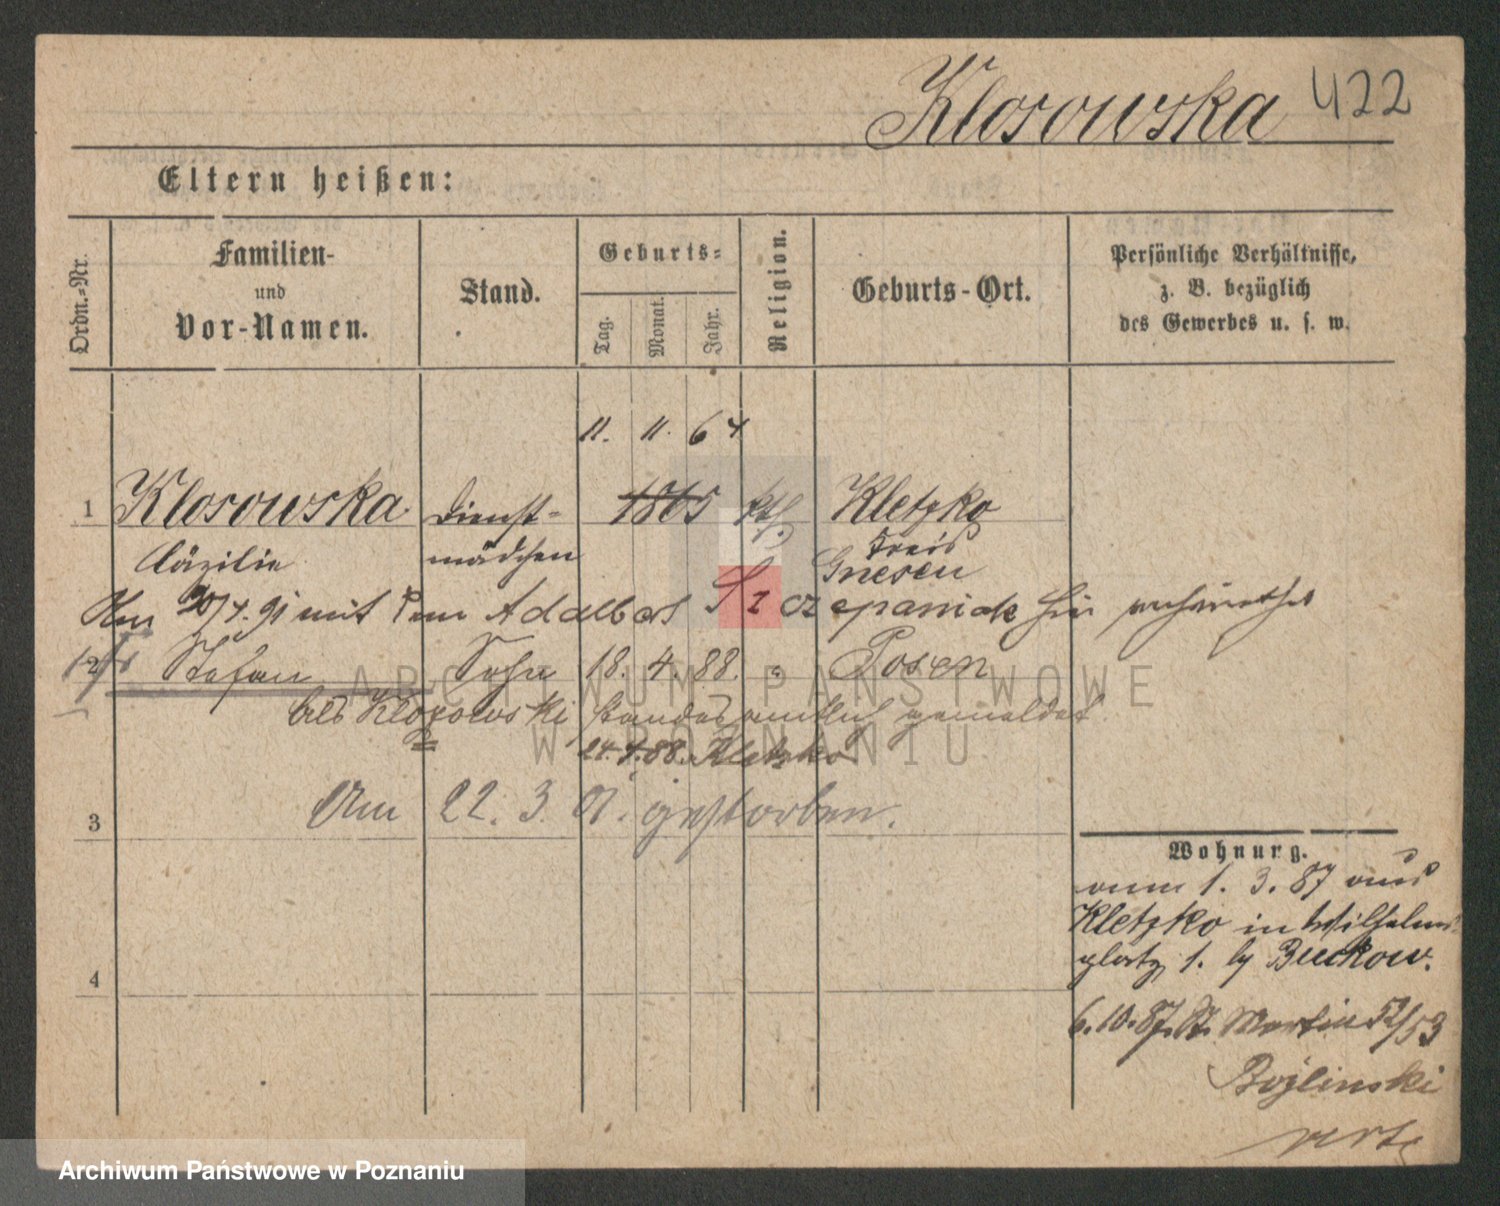 Klosowska 422
Eltern heißen:
Ordn.-Nr.
Familien-
und
Vor-Namen.
Stand.
Geburts-
Tag.
Monat.
Jahr.
Religion.
Geburts-Ort.
Persönliche Verhältnisse,
z. B. bezüglich
des Gewerbes u. s. w.
11. 11. 64
1 Klosowska Dienst- 1865 kth. Kletzko
Cäzilie mädchen Kreis
Gnesen
4. 91 mit dem Adalbert Szczepaniak hier verheirathet
2 Stefan Sohn 18. 4. 88. " Posen
als Klozowski standesamtlich gemeldet
24. 4. 88. Kletzko
Am 22. 3. 01. gestorben.
3
4
Wohnung.
vom 1. 3. 87 aus
Kletzko in Wilhelms-
platz 1. by Buckow.
6. 10. 87. St. Martin 52/53
ARCHIWUM PAŃSTWOWE
W POZNANIU
Archiwum Państwowe w Poznaniu